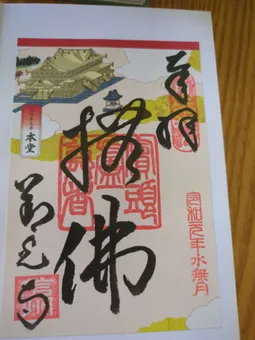 奉拝
令和元年水無月
撫佛
本堂
善光寺